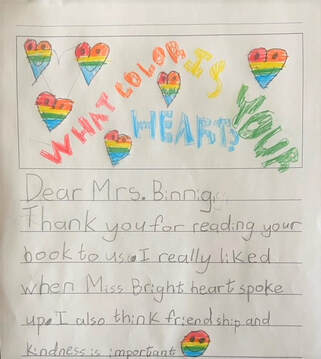 WHAT COLOR IS YOUR HEART?
Dear Mrs. Binnig,
Thank you for reading your
book to us. I really liked
when Miss Bright heart spoke
up. I also think friendship and
kindness is important